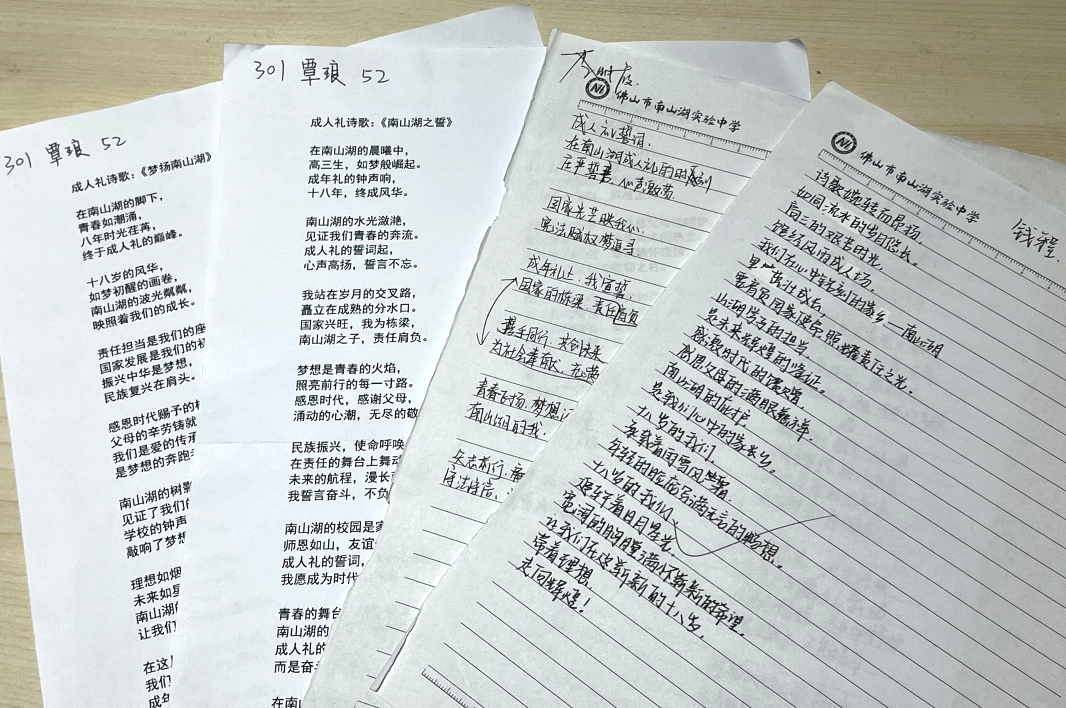 301 覃琅 52
成人礼诗歌:《梦扬南山湖》
在南山湖的脚下,
青春如潮涌,
八年时光荏苒,
终于成人礼的巅峰。
十八岁的风华,
如梦初醒的画卷,
南山湖的波光粼粼,
映照着我们的成长。
责任担当是我们的座
国家发展是我们的
振兴中华是梦想,
民族复兴在肩头。
感恩时代赐予的
父母的辛劳铸就
我们是爱的传承
是梦想的奔跑
南山湖的树影
见证了我们的
学校的钟声
敲响了梦想
理想如烟
未来如星
南山湖
让我们
在这
我们
成年
301 覃琅 52
成人礼诗歌:《南山湖之誓》
在南山湖的晨曦中,
高三生,如梦般崛起。
成年礼的钟声响,
十八年,终成风华。
南山湖的水光潋滟,
见证我们青春的奔流。
成人礼的誓词起,
心声高扬,誓言不忘。
我站在岁月的交叉路,
矗立在成熟的分水口。
国家兴旺,我为栋梁,
南山湖之子,责任肩负。
梦想是青春的火焰,
照亮前行的每一寸路。
感恩时代,感谢父母,
涌动的心潮,无尽的敬
民族振兴,使命呼唤
在责任的舞台上舞动
未来的航程,漫长
我誓言奋斗,不负
南山湖的校园是家
师恩如山,友谊
成人礼的誓词,
我愿成为时代
青春的舞台
南山湖的
成人礼的
而是奋斗
在南山
佛山市南山湖实验中学
成人礼誓词
在南山湖成人礼的时刻
庄严誓言,心声激荡。
国家光芒映我们,
宪法赋权梦追寻。
成年礼上,我宣誓,
国家的栋梁,责任肩负
携手同行,共创未来
为社会奉献,
青春飞扬,梦想
南山湖的我,
矢志前行,
佛山市南山湖实验中学
钱程
诗歌婉转而悠扬,
如同流水的岁月悠长。
高三的艰苦时光,
锤炼风雨成人场。
我们在心中铭刻的家乡—南山湖
里广告让成长,
山湖学子的担当,
是未来辉煌的鉴证。
感激时代的馈赠,
感恩父母的
南山湖的庇护
是我们心中的
十八岁的我们
承载着雨雪风霜
年轻的脸庞写满无言的畅想。
十八岁的我们
宽阔的胸膛满怀崭新的希望。
让我们在这崭新的十八岁,
带着理想,
走向辉煌!